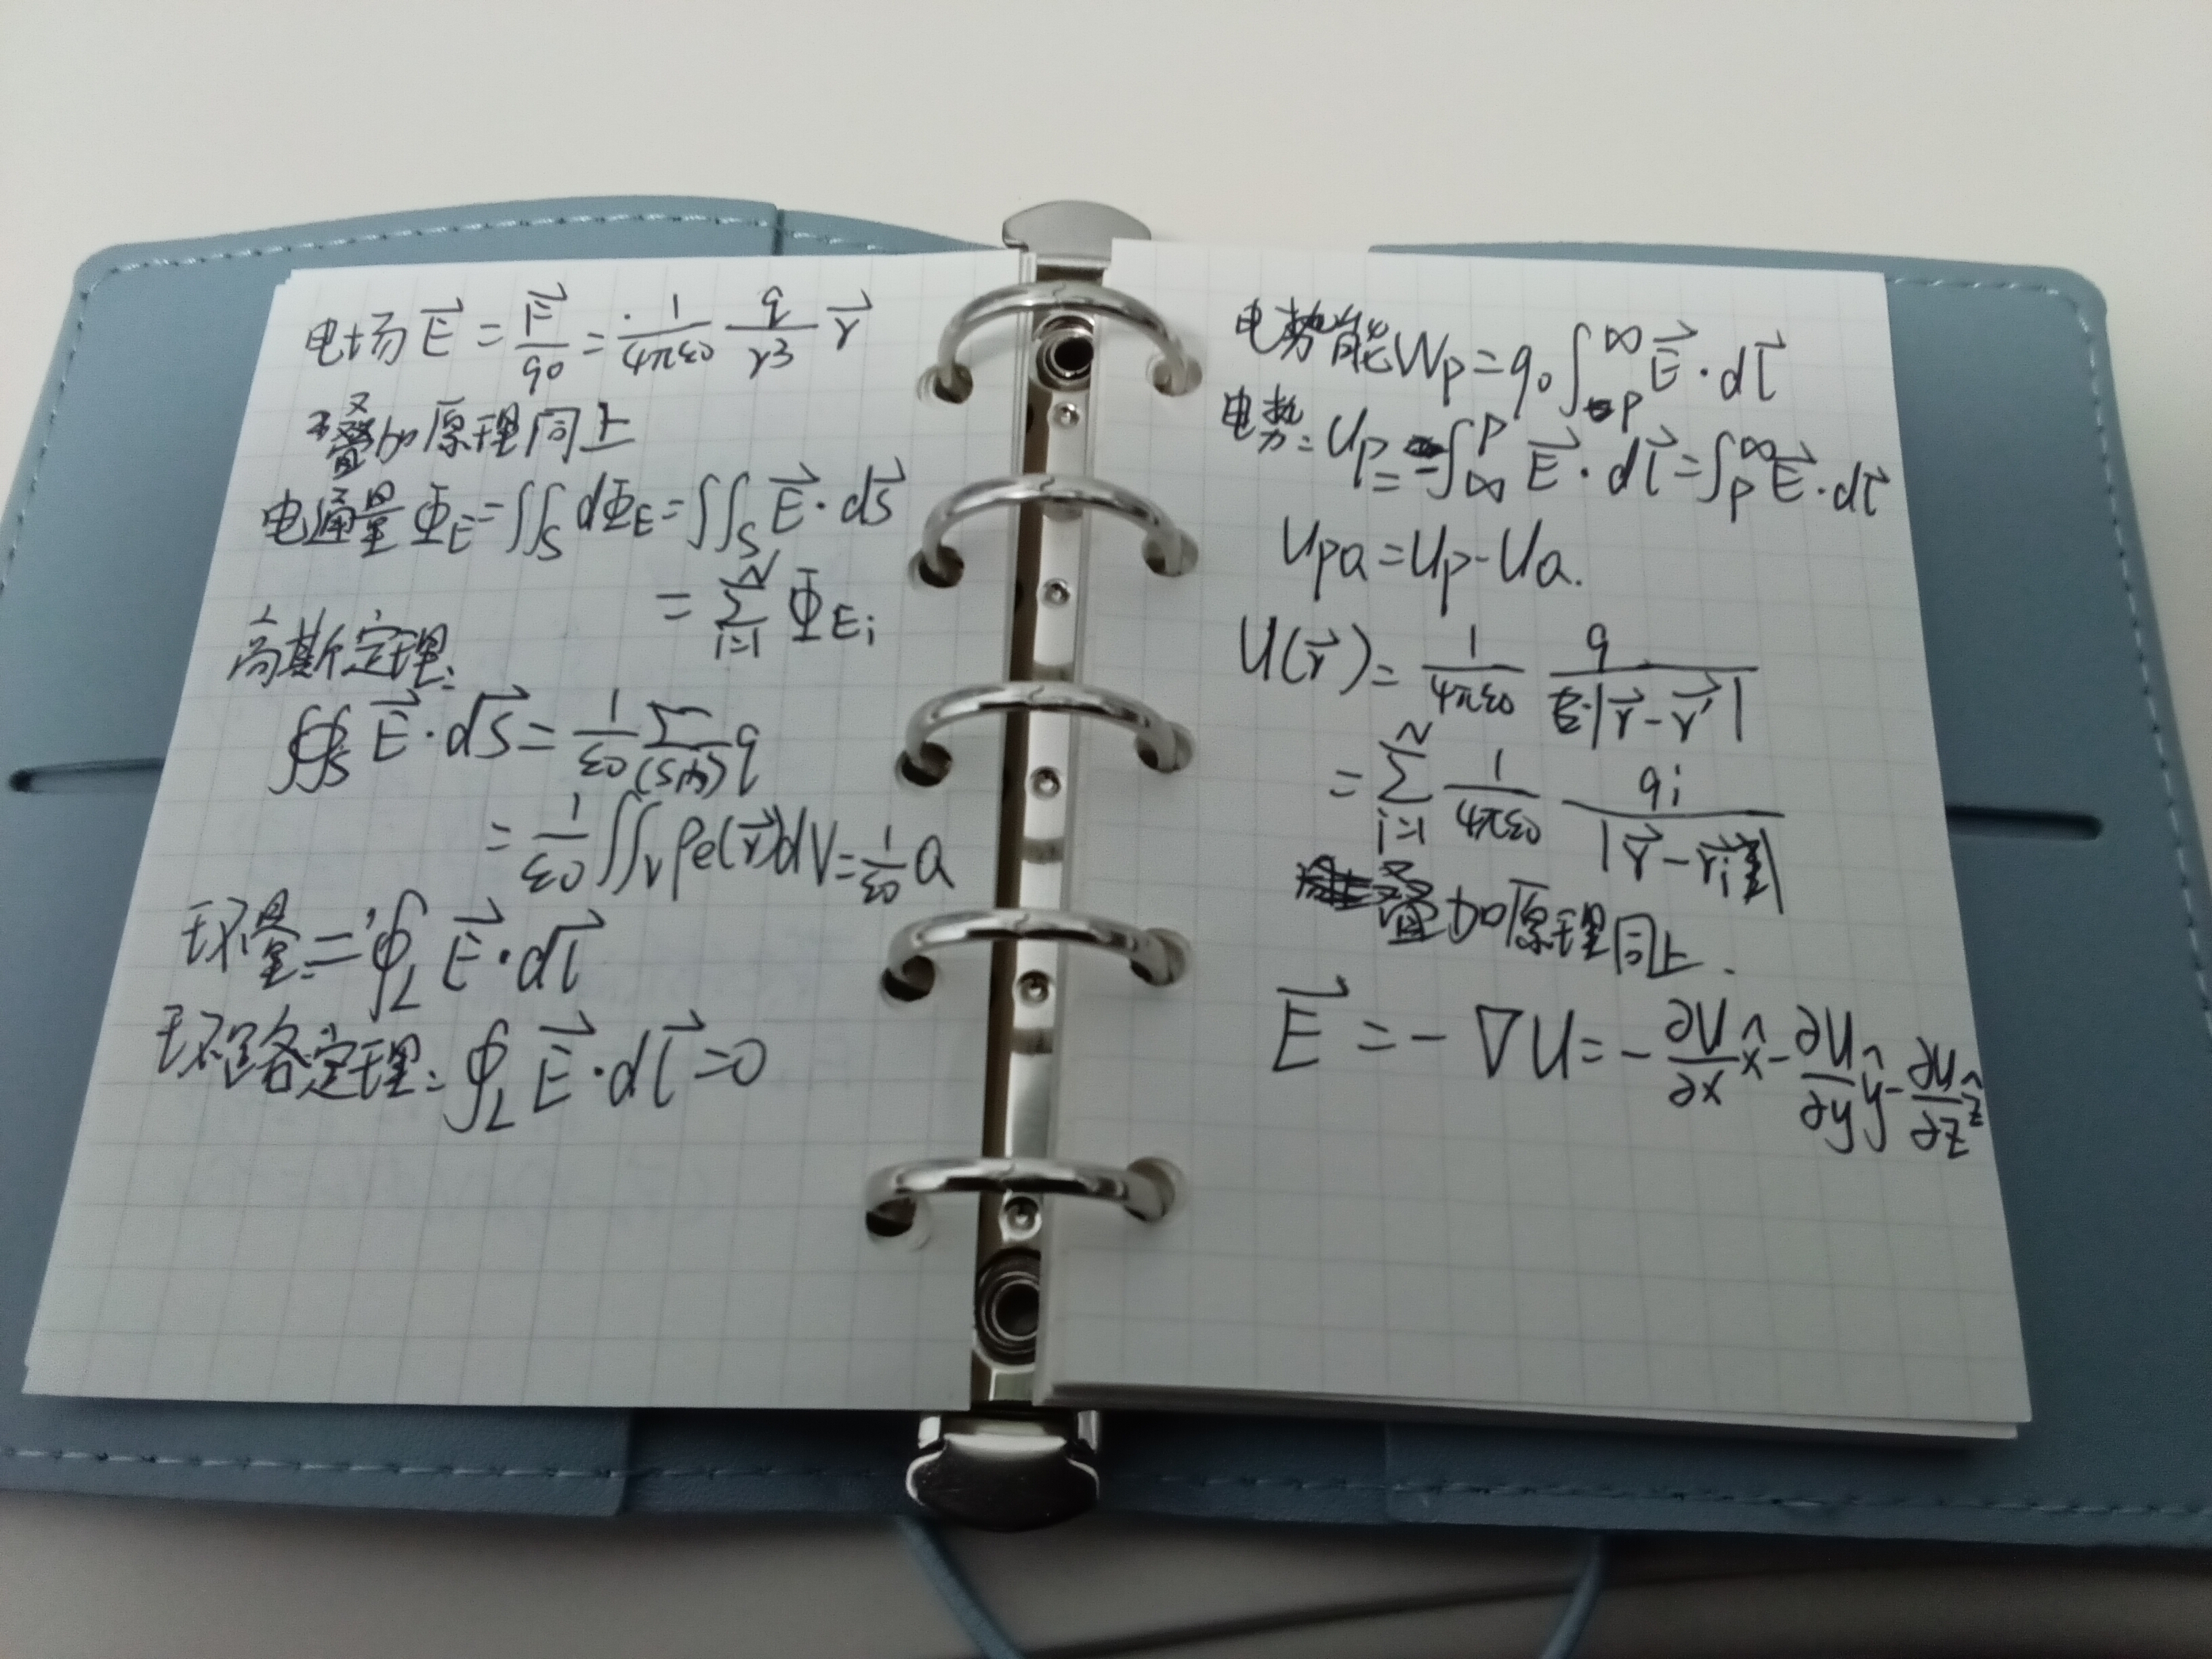 电场 $\vec{E} = \frac{\vec{F}}{q_0} = \frac{1}{4\pi\varepsilon_0} \frac{q}{r^3} \vec{r}$
叠加原理同上
电通量 $\Phi_E = \iint_S d\Phi_E = \iint_S \vec{E} \cdot d\vec{S}$
$= \sum_{i=1}^{N} \Phi_{Ei}$
高斯定理:
$\oiint_S \vec{E} \cdot d\vec{S} = \frac{1}{\varepsilon_0} \sum_{(S内)} q$
$= \frac{1}{\varepsilon_0} \iint_V \rho_e(\vec{r}) dV = \frac{1}{\varepsilon_0} Q$
环量: $= \oint_L \vec{E} \cdot d\vec{l}$
环路定理: $\oint_L \vec{E} \cdot d\vec{l} = 0$
电势能 $W_p = q_0 \int_p^\infty \vec{E} \cdot d\vec{l}$
电势: $U_p = -\int_\infty^p \vec{E} \cdot d\vec{l} = \int_p^\infty \vec{E} \cdot d\vec{l}$
$U_{pa} = U_p - U_a.$
$U(\vec{r}) = \frac{1}{4\pi\varepsilon_0} \frac{q}{|\vec{r} - \vec{r}'|}$
$= \sum_{i=1}^{N} \frac{1}{4\pi\varepsilon_0} \frac{q_i}{|\vec{r} - \vec{r_i}|}$
叠加原理同上.
$\vec{E} = -\nabla U = -\frac{\partial U}{\partial x} \hat{x} - \frac{\partial U}{\partial y} \hat{y} - \frac{\partial U}{\partial z} \hat{z}$